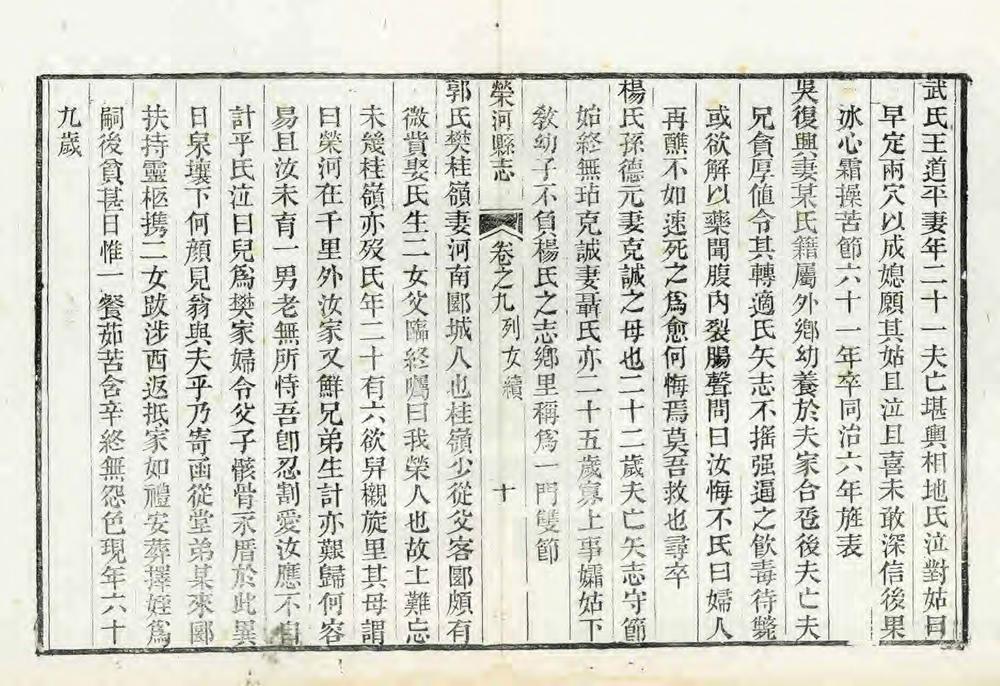 武氏王道平妻年二十一夫亡堪輿相地氏泣對姑曰
早定兩穴以成媳願其姑且泣且喜未敢深信後果
冰心霜操苦節六十一年卒同治六年旌表
吳復興妻某氏籍屬外鄉幼養於夫家合卺後夫亡夫
兄貪厚値令其轉適氏矢志不搖强逼之飮毒待斃
或欲解以藥聞腹內裂腸聲問曰汝悔不氏曰婦人
再醮不如速死之爲愈何悔焉莫吾救也尋卒
楊氏孫德元妻克誠之母也二十二歲夫亡矢志守節
始終無玷克誠妻聶氏亦二十五歲寡上事孀姑下
敎幼子不負楊氏之志鄉里稱爲一門雙節
榮河縣志 卷之九 列女續 十
郭氏樊桂嶺妻河南郾城人也桂嶺少從父客郾頗有
微貲娶氏生二女父臨終囑曰我榮人也故土難忘
未幾桂嶺亦歿氏年二十有六欲舁櫬旋里其母謂
曰榮河在千里外汝家又鮮兄弟生計亦艱歸何容
易且汝未育一男老無所恃吾卽忍割愛汝應不自
計乎氏泣曰兒爲樊家婦令父子骸骨永厝於此異
日泉壤下何顏見翁與夫乎乃寄函從堂弟某來郾
扶持靈柩携二女跋涉西返抵家如禮安葬擇姪爲
嗣後貧甚日惟一餐茹苦含辛終無怨色現年六十
九歲